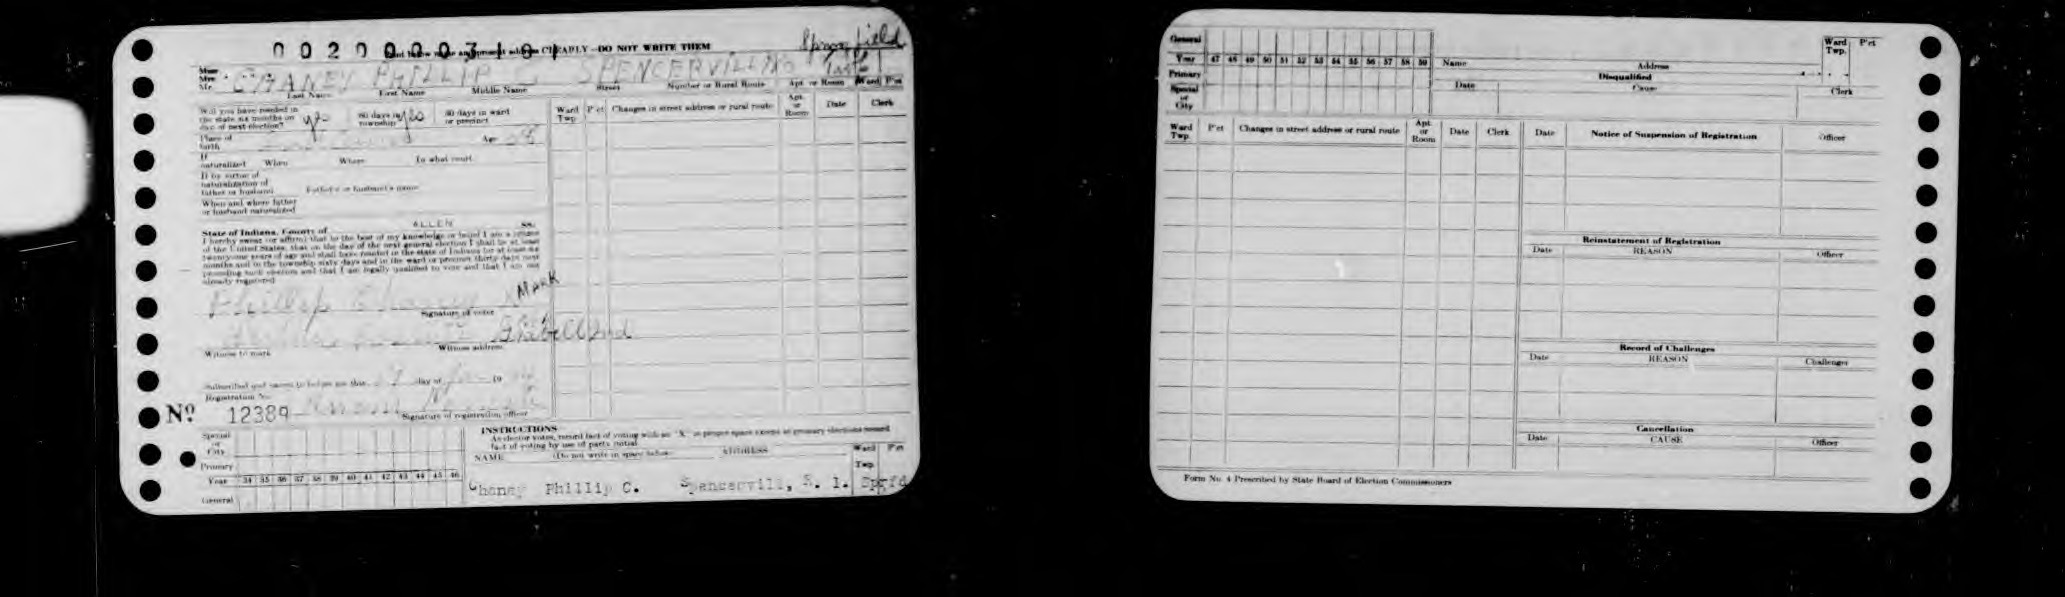 00200003181
CLEARLY—DO NOT WRITE THEM
Springfield
Miss
Mrs.
Mr.
CHANEY PHILLIP SPENCERVILL
Last Name First Name Middle Name Street Number or Rural Route Apt. or Room Ward P'ct
Will you have resided in
the state six months on
day of next election? yes 60 days in
township yes 30 days in ward
or precinct
Place of
birth Age
If
naturalized When Where In what court
If by virtue of
naturalization of
father or husband Father's or husband's name
When and where father
or husband naturalized
State of Indiana, County of ALLEN ss.
I hereby swear (or affirm) that to the best of my knowledge or belief I am a citizen
of the United States, that on the day of the next general election I shall be at least
twenty-one years of age and shall have resided in the state of Indiana for at least six
months and in the township sixty days and in the ward or precinct thirty days next
preceding such election and that I am legally qualified to vote and that I am not
already registered
Phillip Chaney X Mark
Signature of voter
Witness to mark Witness address
Subscribed and sworn to before me this day of 19
Registration No.
No 12389
Signature of registration officer
Ward
Twp. P'ct Changes in street address or rural route Apt.
or
Room Date Clerk
Special
or
City
Primary
Year 34 35 36 37 38 39 40 41 42 43 44 45 46
General
INSTRUCTIONS
As elector votes, record fact of voting with an "X" in proper space except in primary elections record
fact of voting by use of party initial
NAME (Do not write in space below) ADDRESS Ward
Twp. P'ct
Chaney Phillip C. Spencervill, R. 1. Sprfd
General
Year 47 48 49 50 51 52 53 54 55 56 57 58 59
Primary
Special
or
City
Name Address Ward
Twp. P'ct
Disqualified
Date Cause Clerk
Ward
Twp. P'ct Changes in street address or rural route Apt.
or
Room Date Clerk
Date Notice of Suspension of Registration Officer
Reinstatement of Registration
Date REASON Officer
Record of Challenges
Date REASON Challenger
Cancellation
Date CAUSE Officer
Form No. 4 Prescribed by State Board of Election Commissioners